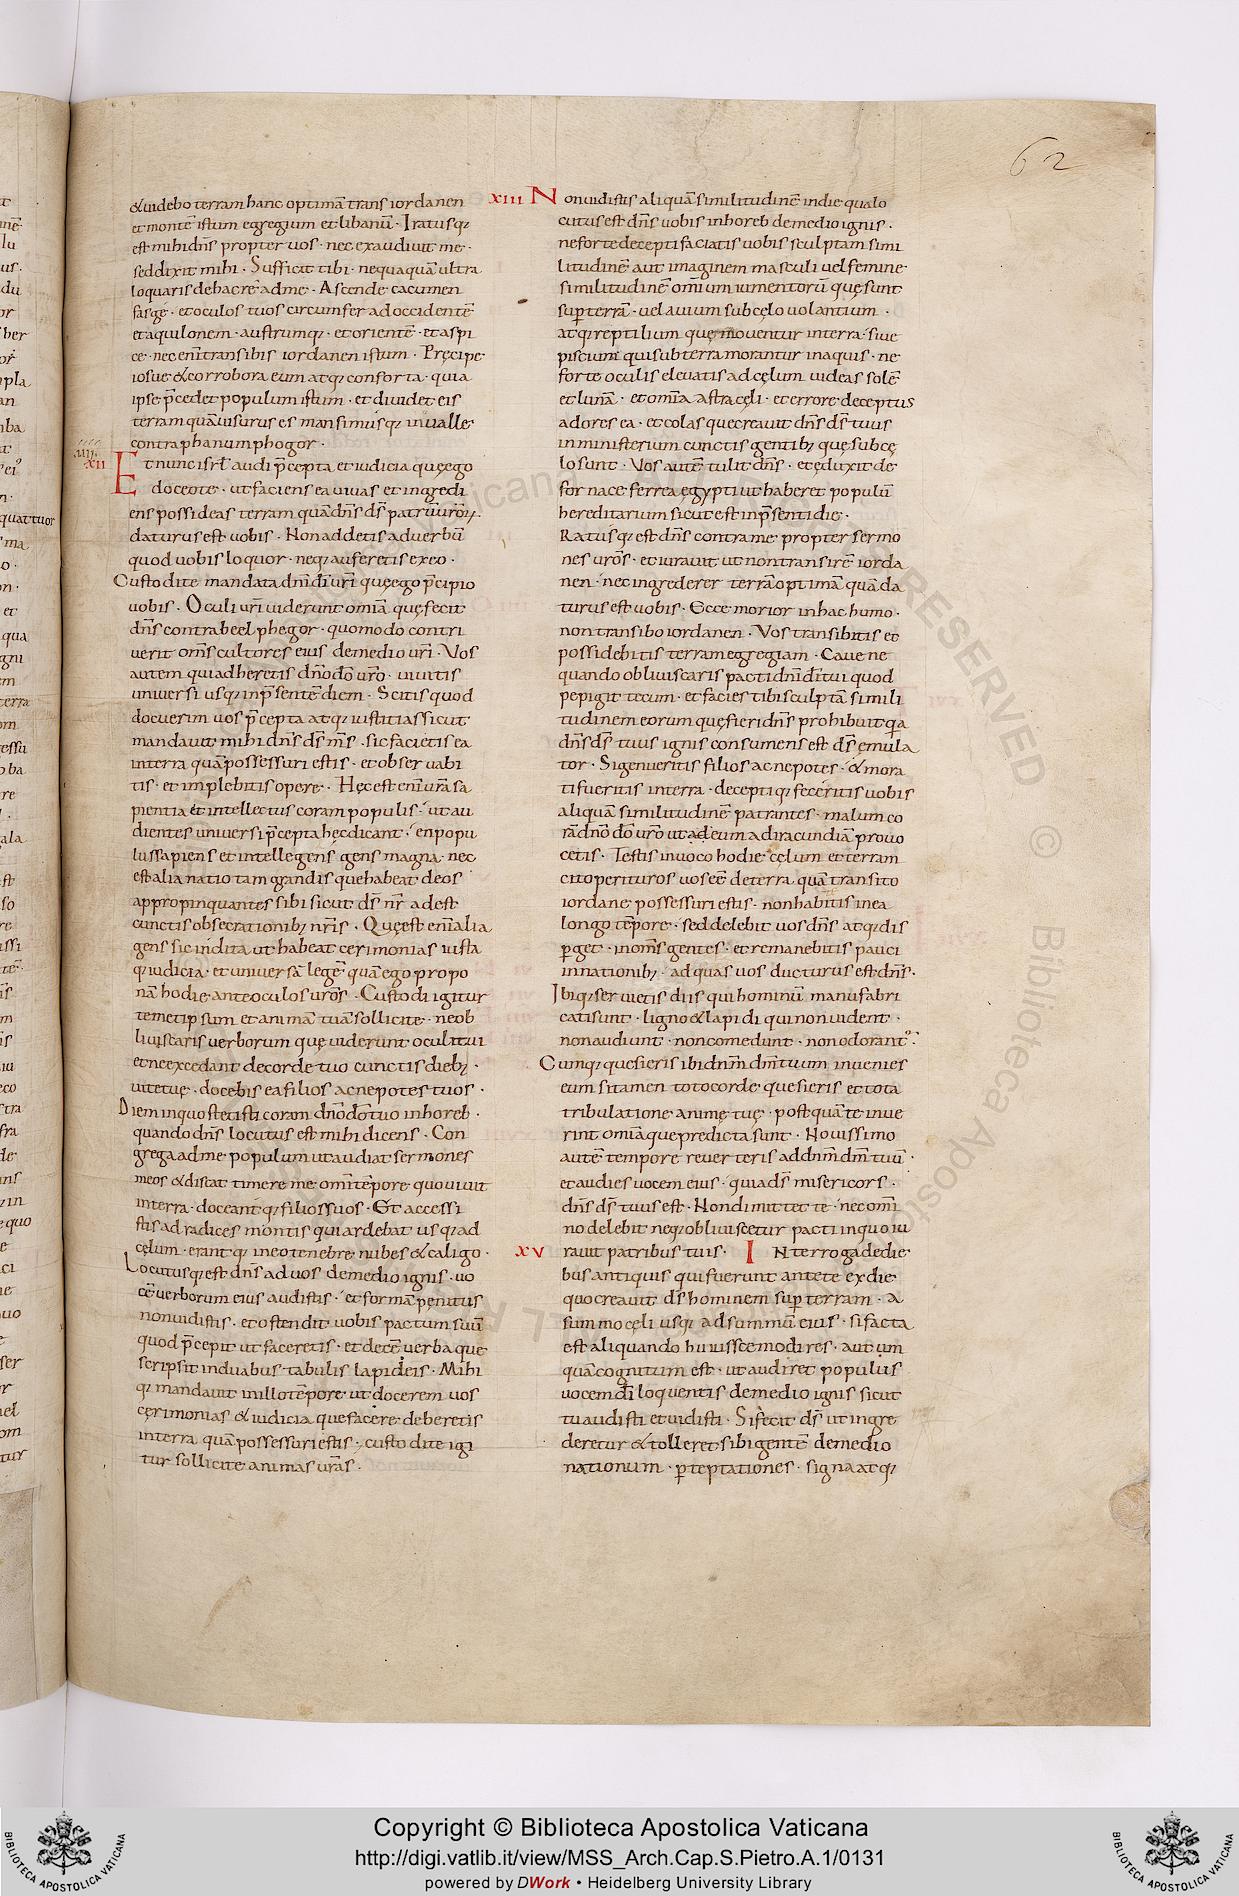 62
&uidebo terram hanc optimā trans iordanen
et montē istum egregium et libanū · Iratusq;
est mihi dn̄s propter uos · nec exaudiuit me ·
sed dixit mihi · Sufficit tibi · nequaquā ultra
loquaris de hac rē ad me · Ascende cacumen
fasgę · et oculos tuos circumfer ad occidentē
et aquilonem · austrumq; · et orientē · et aspi
ce · nec enī transibis iordanen istum · Pręcipe
iosue & corrobora eum atq; conforta · quia
ipse p̄cedet populum istum · et diuidet eis
terram quā uisurus es mansimusq; in ualle
contra phanum phogor ·
xii Et nunc isrł audi p̄cepta et iudicia quę ego
doceo te · ut faciens ea uiuas et ingredi
ens possideas terram quā dn̄s ds̄ patrū ur̄oꝝ
daturus est uobis · Non addetis ad uerbū
quod uobis loquor · neq; auferetis ex eo ·
Custodite mandata dn̄i dī ur̄i quę ego p̄cipio
uobis · Oculi ur̄i uiderunt om̄ia quę fecit
dn̄s contra beelphegor · quomodo contri
uerit om̄s cultores eius de medio ur̄i · Vos
autem qui adheretis dn̄o dō ur̄o · uiuitis
uniuersi usq; in p̄sentē diem · Scitis quod
docuerim uos p̄cepta atq; iustitias sicut
mandauit mihi dn̄s ds̄ m̄s · sic facietis ea
in terra quā possessuri estis · et obseruabi
tis · et implebitis opere · Hęc est enī ur̄a sa
pientia et intellectus coram populis · ut au
dientes uniuersi p̄cepta hęc dicant · en popu
lus sapiens et intellegens gens magna · nec
est alia natio tam grandis que habeat deos
appropinquantes sibi sicut ds̄ nr̄ adest
cunctis obsecrationib; nr̄is · Quę est enī alia
gens sic indita ut habeat cęrimonias iusta
q; iudicia · et uniuersā legē quā ego propo
nā hodie ante oculos ur̄os · Custodi igitur
temetipsum et animā tuā sollicite · ne ob
liuiscaris uerborum quę uiderunt oculi tui
et ne excedant de corde tuo cunctis dieb;
uitę tuę · docebis ea filios ac nepotes tuos ·
Diem in quo stetisti coram dn̄o dō tuo in horeb ·
quando dn̄s locutus est mihi dicens · Con
grega ad me populum ut audiat sermones
meos & discat timere me om̄i tēpore quo uiuit
in terra · doceantq; filios suos · Et accessi
stis ad radices montis qui ardebat usq; ad
cęlum · erantq; in eo tenebre nubes & caligo ·
Locutusq; est dn̄s ad uos de medio ignis · uo
cē uerborum eius audistis · et formā pęnitus
non uidistis · et ostendit uobis pactum suū
quod p̄cepit ut faceretis · et decē uerba que
scripsit in duabus tabulis lapideis · Mihi
q; mandauit in illo tēpore ut docerem uos
cęrimonias & iudicia que facere deberetis
in terra quā possessori estis · custodite igi
tur sollicite animas ur̄as ·
xiii Non uidistis aliquā similitudinē in die qua lo
cutus est dn̄s uobis in horeb de medio ignis ·
ne forte decepti faciatis uobis sculptam simi
litudinē aut imaginem masculi uel femine
similitudinē om̄ium iumentorū quę sunt
sup̱ terrā · uel auium sub cęlo uolantium ·
atq; reptilium quę mouentur in terra · siue
piscium qui sub terra morantur in aquis · ne
forte oculis eleuatis ad cęlum uideas solē
et lunā · et om̄ia astra cęli · et errore deceptus
adores ea · et colas que creauit dn̄s ds̄ tuus
in ministerium cunctis gentib; quę sub cę
lo sunt · Vos autē tulit dn̄s · et eduxit de
fornace ferrea ęgypti ut haberet populū
hereditarium sicut est in p̄senti die ·
Ratusq; est dn̄s contra me propter sermo
nes ur̄os · et iurauit ut non transirē iorda
nen · nec ingrederer terrā optimā quā da
turus est uobis · Ecce morior in hac humo ·
non transibo iordanen · Vos transibitis et
possidebitis terram egregiam · Caue ne
quando obliuiscaris pacti dn̄i dī tui quod
pepigit tecum · et facies tibi sculptā simili
tudinem eorum quę fieri dn̄s prohibuit · q̄a
dn̄s ds̄ tuus ignis consumens est ds̄ ęmula
tor · Si genueritis filios ac nepotes · & mora
ti fueritis in terra · deceptiq; feceritis uobis
aliquā similitudinē patrantes · malum co
rā dn̄o dō ur̄o ut ad eum ad iracundiā prouo
cetis · Testis inuoco hodie cęlum et terram
cito perituros uos eē de terra quā transito
iordane possessuri estis · non habitis in ea
longo tēpore · sed delebit uos dn̄s atq; dis
p̱get · in om̄s gentes · et remanebitis pauci
in nationib; · ad quas uos ducturus est dn̄s ·
Ibiq; seruietis diis qui hominū manu fabri
cati sunt · ligno & lapidi qui non uident ·
non audiunt · non comedunt · non odorant ·
Cumq; quesieris ibi dn̄m dm̄ tuum inuenies
eum si tamen toto corde quesieris et tota
tribulatione animę tuę · postquā te inue
rint om̄ia que predicta sunt · Nouissimo
autē tempore reuerteris ad dn̄m dm̄ tuū ·
et audies uocem eius · quia ds̄ misericors ·
dn̄s ds̄ tuus est · Non dimittet te · nec om̄i
no delebit neq; obliuiscetur pacti in quo iu
xv rauit patribus tuis · Interroga de die
bus antiquis qui fuerunt ante te ex die
quo creauit ds̄ hominem sup̱ terram · a
summo cęli usq; ad summū eius · si facta
est aliquando huiuscemodi res · aut um
quā cognitum est · ut audiret populus
uocem dī loquentis de medio ignis sicut
tu audisti et uidisti · Si fecit ds̄ ut ingre
deretur & tolleret sibi gentē de medio
nationum · p̱ teptationes · signa atq;
Copyright © Biblioteca Apostolica Vaticana
http://digi.vatlib.it/view/MSS_Arch.Cap.S.Pietro.A.1/0131
powered by DWork • Heidelberg University Library